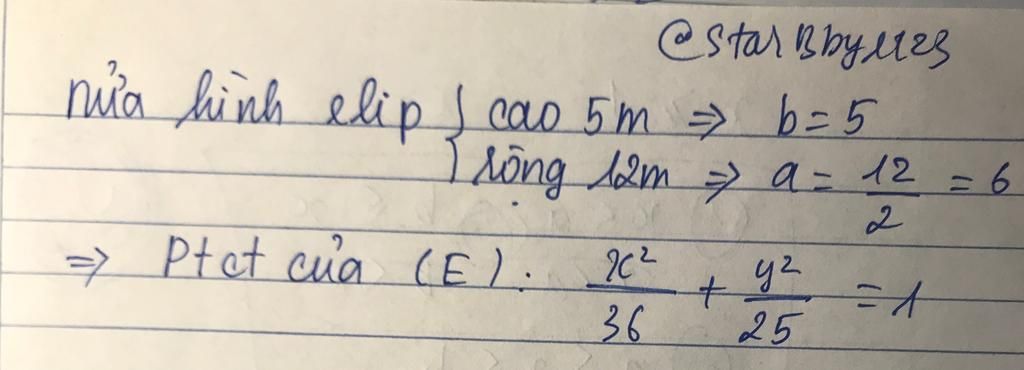 @StarBbyll23
nửa hình elip { cao 5m => b = 5
{ rộng 12m => a = 12/2 = 6
=> Ptct của (E): x²/36 + y²/25 = 1